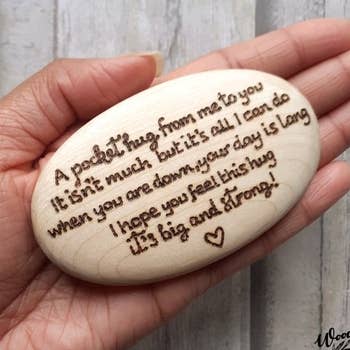 A pocket hug from me to you
It isn't much but it's all I can do
when you are down, your day is long
I hope you feel this hug
it's big and strong!